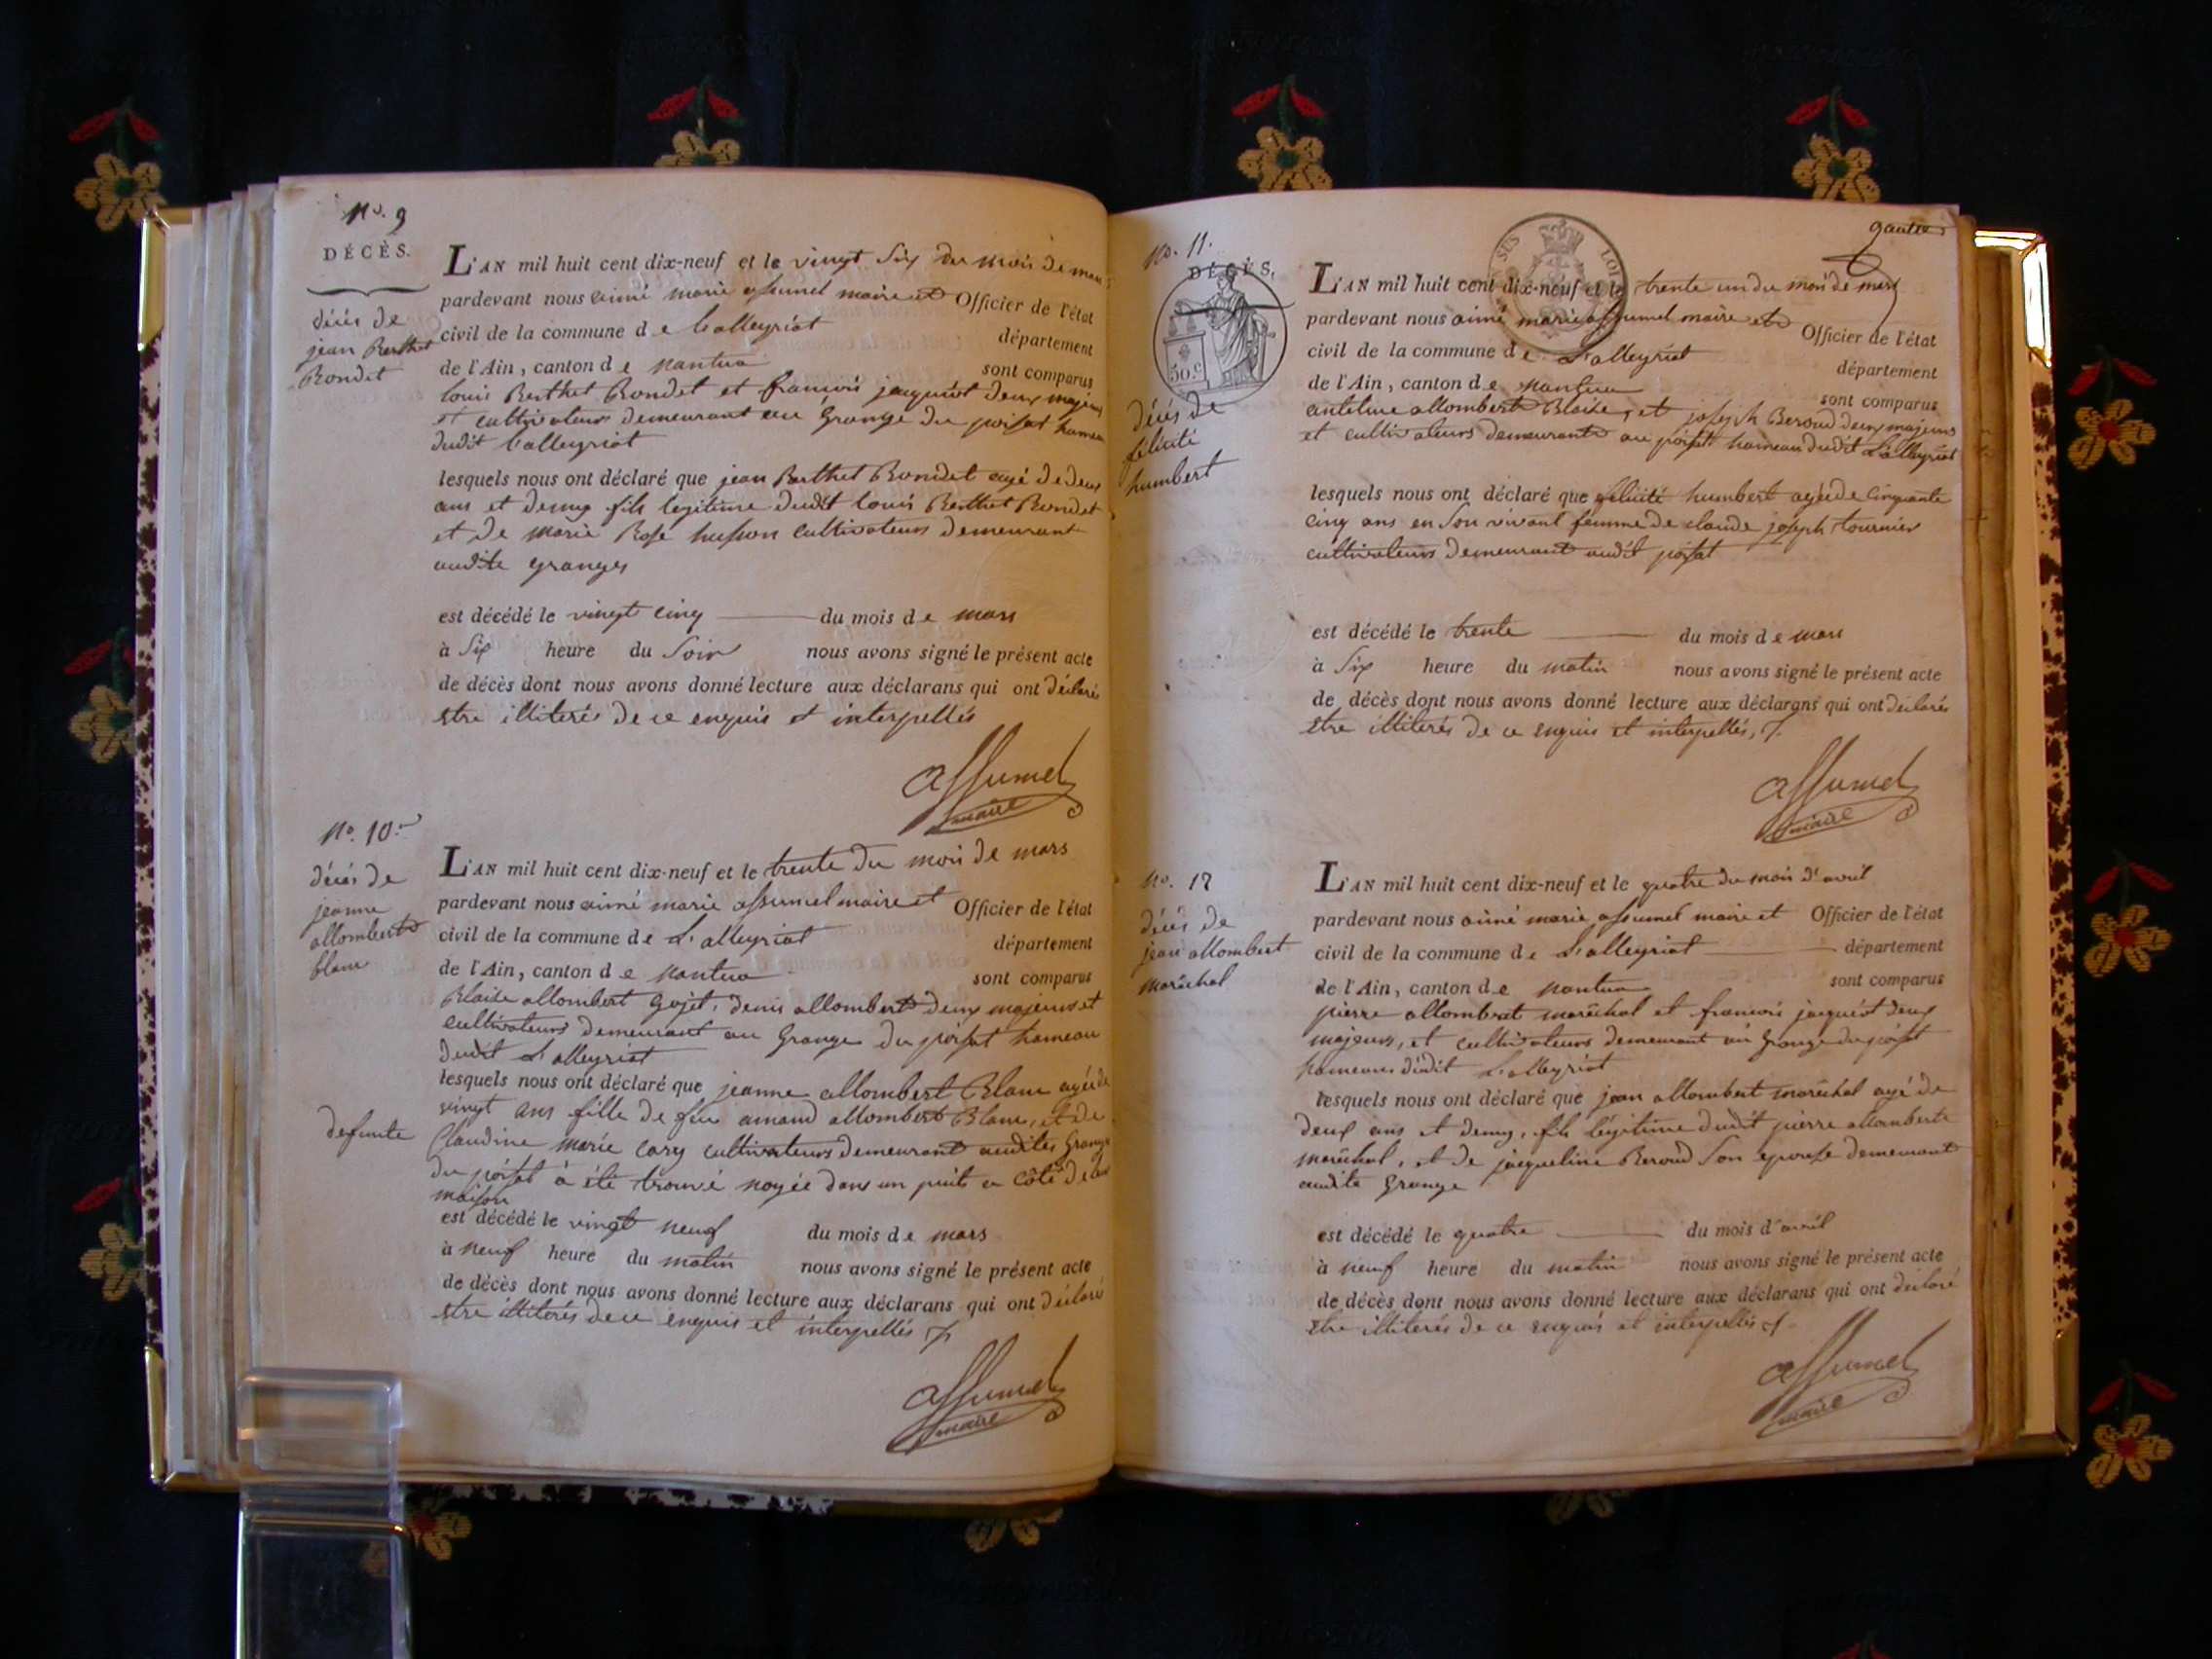 No. 9
DÉCÈS.
décès de
jean Berthet
Rondet
L'AN mil huit cent dix-neuf et le vingt Six du mois de mars
pardevant nous aimé marie assumel maire et Officier de l'état
civil de la commune de Lalleyriat département
de l'Ain, canton de nantua sont comparus
louis Berthet Rondet et françois jacquiot deux majeurs
et cultivateurs demeurant au Grange du poisat hameau
dudit Lalleyriat
lesquels nous ont déclaré que jean Berthet Rondet agé de deux
ans et demy fils legitime dudit louis Berthet Rondet
et de marie Rose husson cultivateurs demeurant
audite granges
est décédé le vingt cinq du mois de mars
à Six heure du Soir nous avons signé le présent acte
de décès dont nous avons donné lecture aux déclarans qui ont déclaré
etre illiterés de ce enquis et interpellés
assumel
maire
No. 10.
décès de
jeanne
allombert
blanc
L'AN mil huit cent dix-neuf et le trente du mois de mars
pardevant nous aimé marie assumel maire et Officier de l'état
civil de la commune de L'alleyriat département
de l'Ain, canton de nantua sont comparus
Blaise allombert Gojet, denis allombert deux majeurs et
cultivateurs demeurant au Grange du poisat hameau
dudit L'alleyriat
lesquels nous ont déclaré que jeanne allombert Blanc agée de
vingt ans fille de feu amand allombert Blanc, et de
defunte Claudine marie cary cultivateurs demeurant audites Grange
du poisat à été trouvé noyée dans un puits a côté de la
maison
est décédé le vingt neuf du mois de mars
à neuf heure du matin nous avons signé le présent acte
de décès dont nous avons donné lecture aux déclarans qui ont déclaré
etre illiterés de ce enquis et interpellés
assumel
maire
gautier
No. 11.
DÉCÈS.
50.c
SUS LOI
décès de
félicité
humbert
L'AN mil huit cent dix-neuf et le trente un du mois de mars
pardevant nous aimé marie assumel maire et Officier de l'état
civil de la commune de L'alleyriat département
de l'Ain, canton de nantua sont comparus
antelme allombert Blaise, et joseph Beroud deux majeurs
et cultivateurs demeurant au poisat hameau dudit L'alleyriat
lesquels nous ont déclaré que félicité humbert agée de Cinquante
cinq ans en Son vivant femme de claude joseph tournier
cultivateurs demeurant audit poisat
est décédé le trente du mois de mars
à Six heure du matin nous avons signé le présent acte
de décès dont nous avons donné lecture aux déclarans qui ont déclarés
etre illiterés de ce enquis et interpellés,
assumel
maire
No. 12
décès de
jean allombert
maréchal
L'AN mil huit cent dix-neuf et le quatre du mois d'avril
pardevant nous aimé marie assumel maire et Officier de l'état
civil de la commune de L'alleyriat département
de l'Ain, canton de nantua sont comparus
pierre allombert maréchal et françois jacquiot deux
majeurs, et cultivateurs demeurant au Grange du poisat
hameau dudit L'alleyriat
lesquels nous ont déclaré que jean allombert maréchal agé de
deux ans et demy, fils légitime dudit pierre allombert
maréchal, et de jacqueline Beroud Son epouse demeurant
audite Grange
est décédé le quatre du mois d'avril
à neuf heure du matin nous avons signé le présent acte
de décès dont nous avons donné lecture aux déclarans qui ont déclaré
etre illiterés de ce enquis et interpellés
assumel
maire